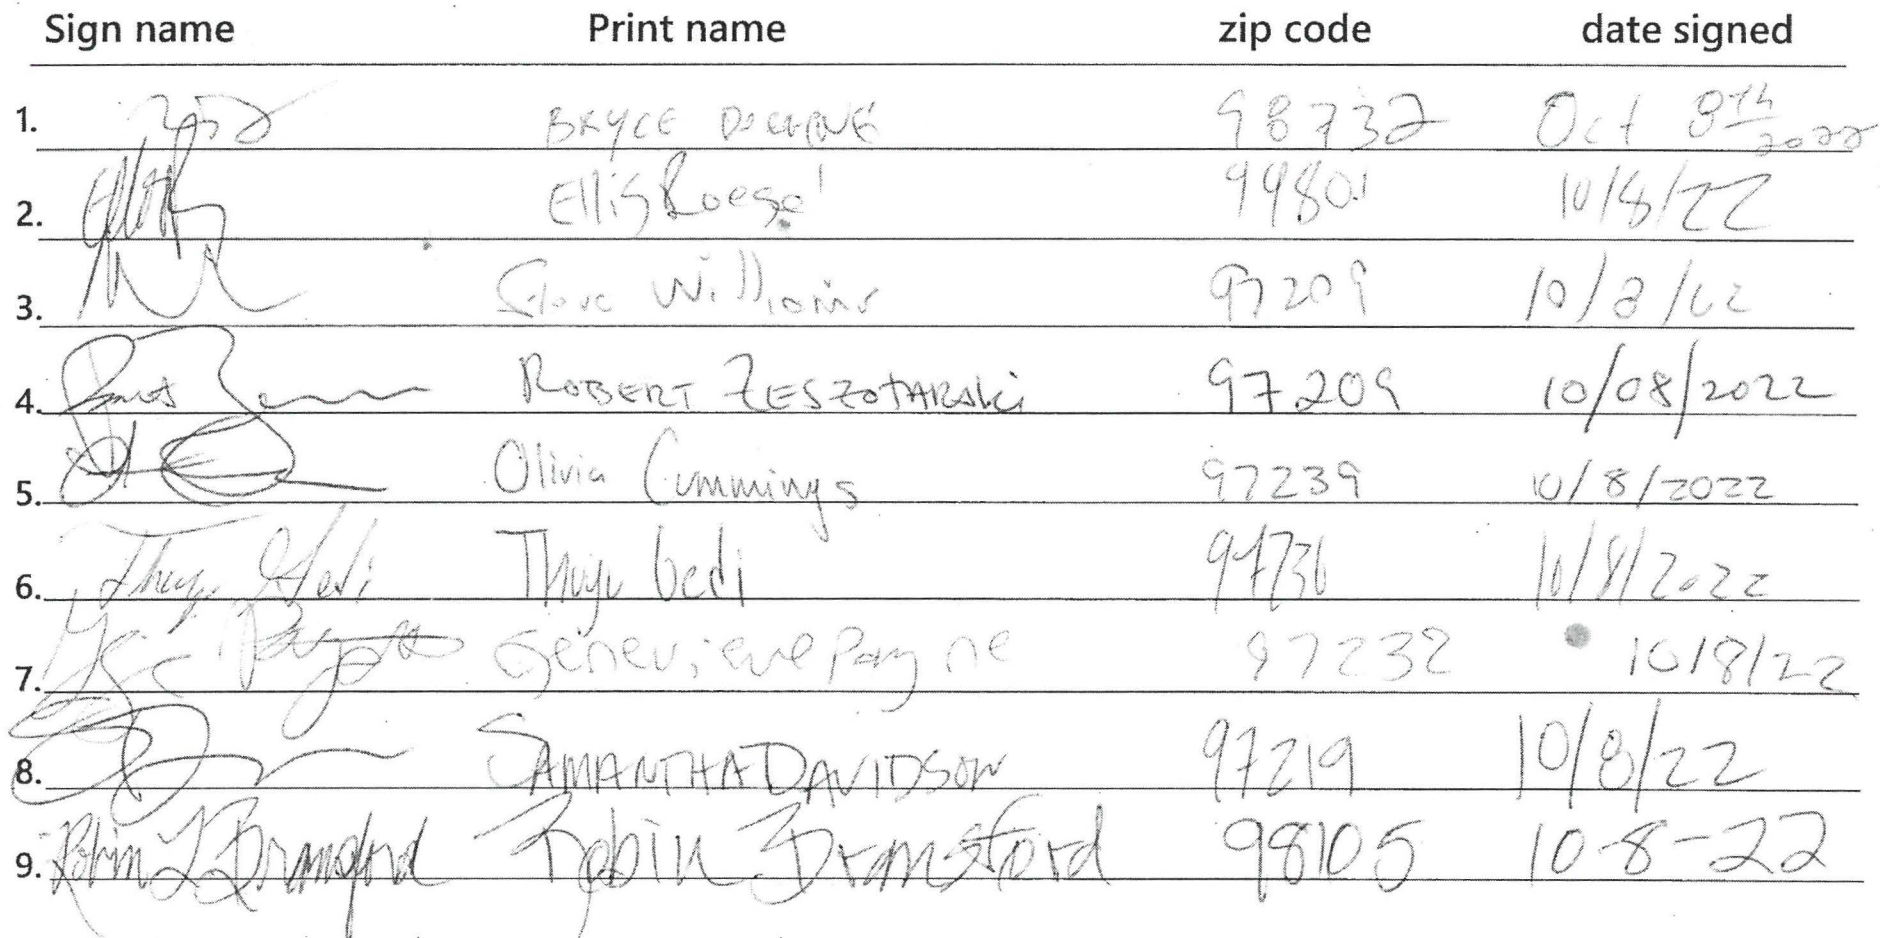 Sign name Print name zip code date signed
1. BRYCE 98732 Oct 8th 2022
2. Ellis 99801 10/8/22
3. Steve Williams 97209 10/8/22
4. ROBERT ZESZOTARSKi 97209 10/08/2022
5. Olivia Cummings 97239 10/8/2022
6. 10/8/2022
7. Genevieve Payne 97232 10/8/22
8. SAMANTHA DAVIDSON 97219 10/8/22
9. Robin Bransford Robin Bransford 98105 10-8-22